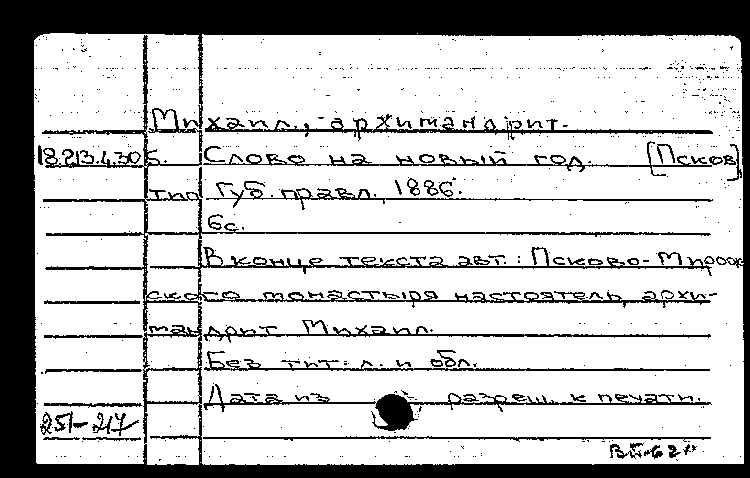 Михаил, архимандрит.
18.213.4.305. Слово на новый год. [Псков],
тип Губ. правл., 1886.
6с.
В конце текста авт.: Псково-Мирож
ского монастыря настоятель, архи-
мандрит Михаил.
Без тит. л. и обл.
Дата из разреш. к печати.
251-217